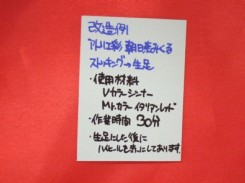 改造例
アトリエ彩 朝日奈みくる
ストッキング→生足
・使用材料
Vカラーシンナー
Mr.カラー イタリアンレッド
・作業時間 30分
・生足にした後に
ハイヒールを赤にしております。